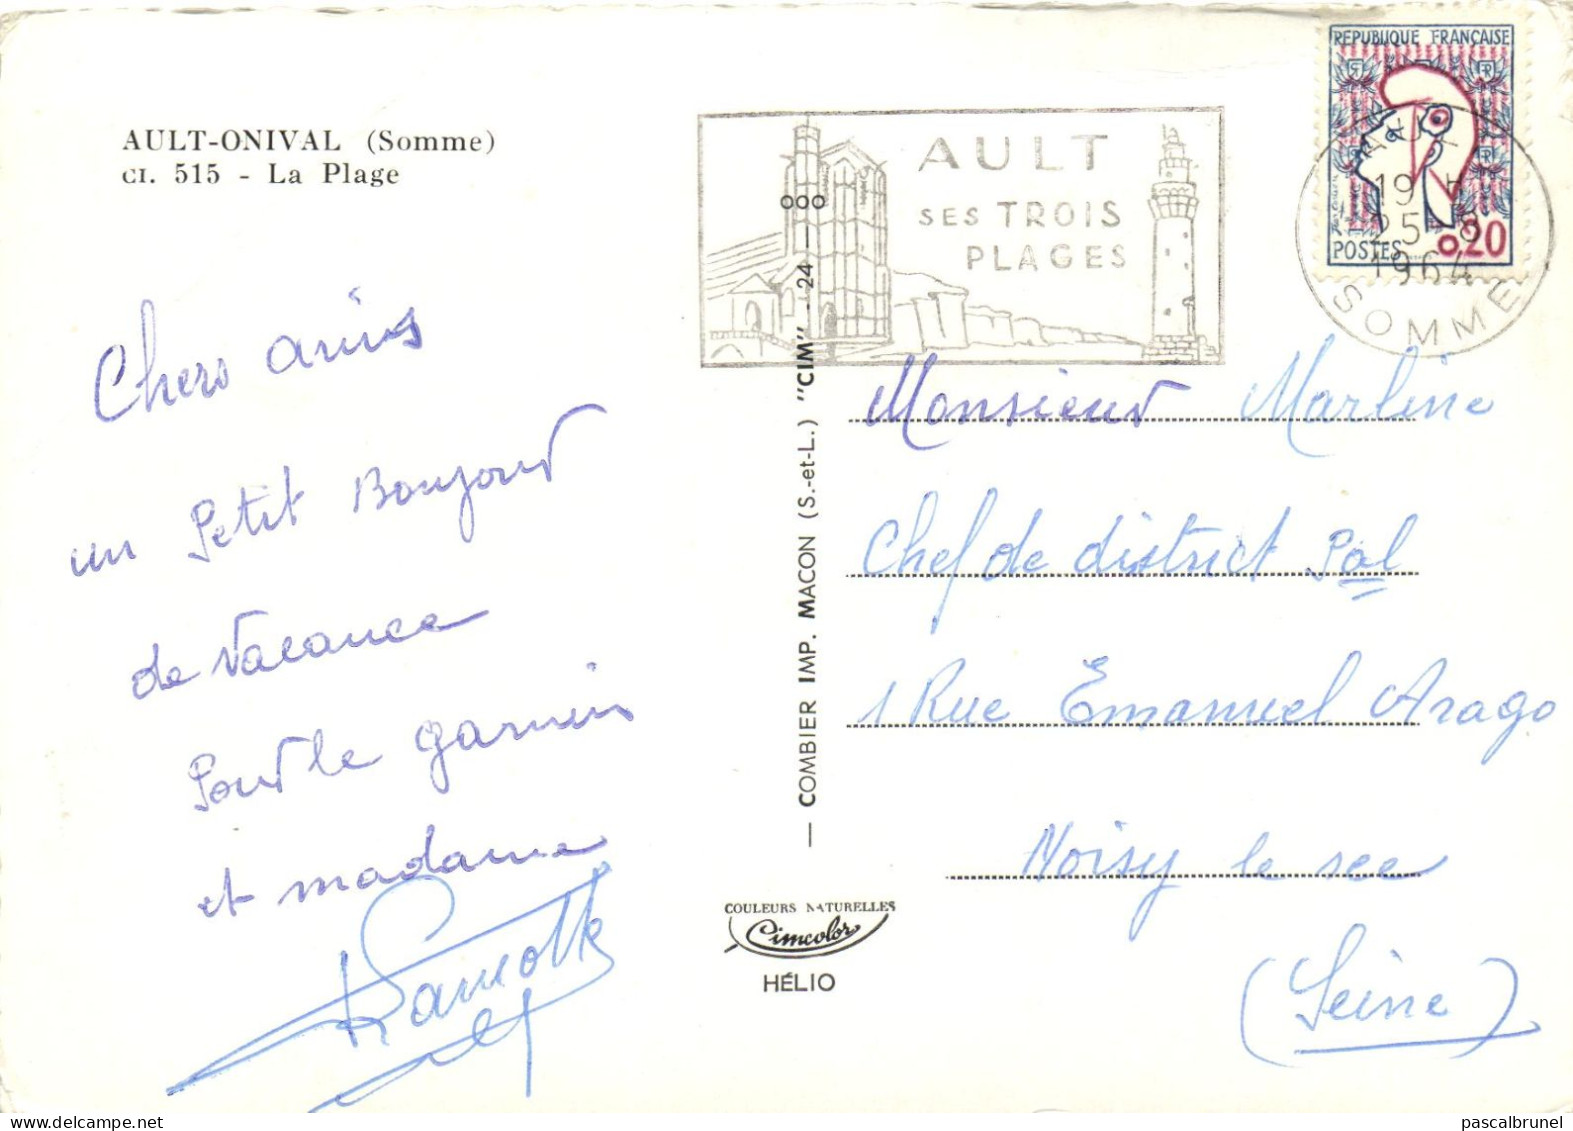 AULT-ONIVAL (Somme)
CI. 515 - La Plage
Chers amis
un Petit Bonjour
de Vacance
Pour le gamin
et madame
AULT
SES TROIS
PLAGES
RÉPUBLIQUE FRANÇAISE
POSTES 0,20
AULT
19 H
25-8
1964
SOMME
COMBIER IMP. MACON (S.-et-L.) "CIM" - 24 - 000
COULEURS NATURELLES
Cimcolor
HÉLIO
Monsieur Marline
Chef de district Pal
1 Rue Emanuel Arago
Noisy le sec
(Seine)
pascalbrunel